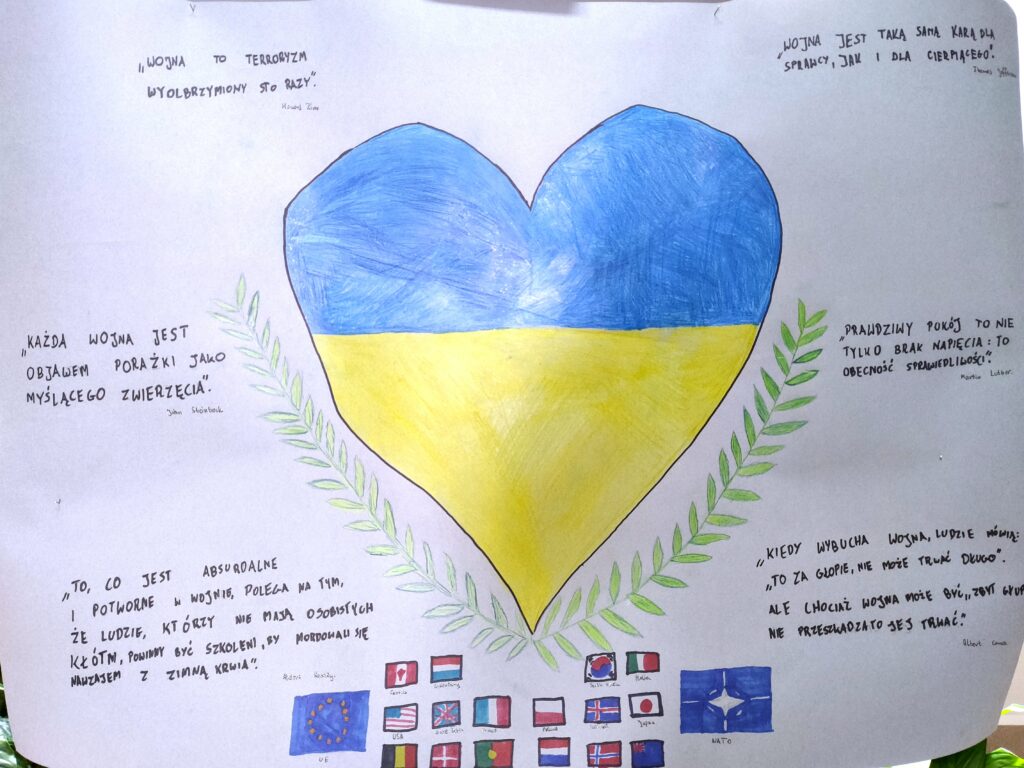 „WOJNA TO TERRORYZM
WYOLBRZYMIONY STO RAZY".
„WOJNA JEST TAKĄ SAMĄ KARĄ DLA
SPRAWCY, JAK I DLA CIERPIĄCEGO".
Thomas
„KAŻDA WOJNA JEST
OBJAWEM PORAŻKI JAKO
MYŚLĄCEGO ZWIERZĘCIA".
John Steinbeck
„PRAWDZIWY POKÓJ TO NIE
TYLKO BRAK NAPIĘCIA: TO
OBECNOŚĆ SPRAWIEDLIWOŚCI".
Martin Luther
„TO, CO JEST ABSURDALNE
I POTWORNE W WOJNIE, POLEGA NA TYM,
ŻE LUDZIE, KTÓRZY NIE MAJĄ OSOBISTYCH
KŁÓTNI, POWINNI BYĆ SZKOLENI, BY MORDOWALI SIĘ
NAWZAJEM Z ZIMNĄ KRWIĄ".
„KIEDY WYBUCHA WOJNA, LUDZIE MÓWIĄ:
„TO ZA GŁUPIE, NIE MOŻE TRWAĆ DŁUGO".
ALE CHOCIAŻ WOJNA MOŻE BYĆ „ZBYT GŁUP
NIE PRZESZKADZA TO JEJ TRWAĆ."
Albert
USA
Japan
UE
NATO